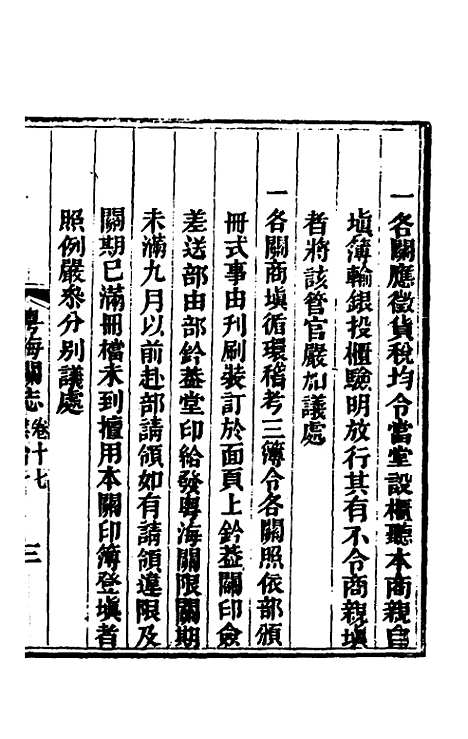 一各關應徵貨稅均令當堂設櫃聽本商親自
塡簿輸銀投櫃驗明放行其有不令商親塡
者將該管官嚴加議處
一各關商塡循環稽考三簿令各關照依部頒
冊式事由刊刷裝訂於面頁上鈐葢關印僉
差送部由部鈐葢堂印給發粤海關限關期
未滿九月以前赴部請領如有請領違限及
關期已滿冊檔未到擅用本關印簿登塡者
照例嚴叅分别議處
粤海關志 卷十七
三